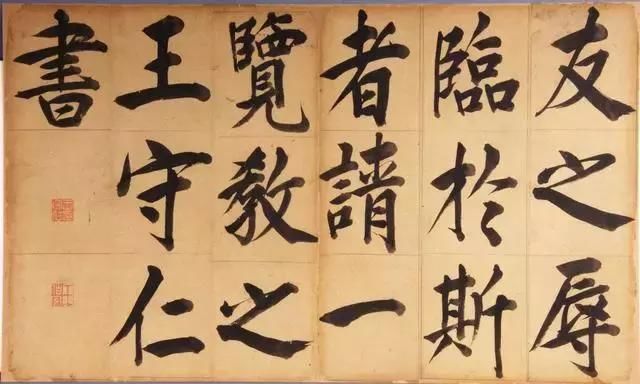 友之辱
臨於斯
者請一
覽教之
王守仁
書